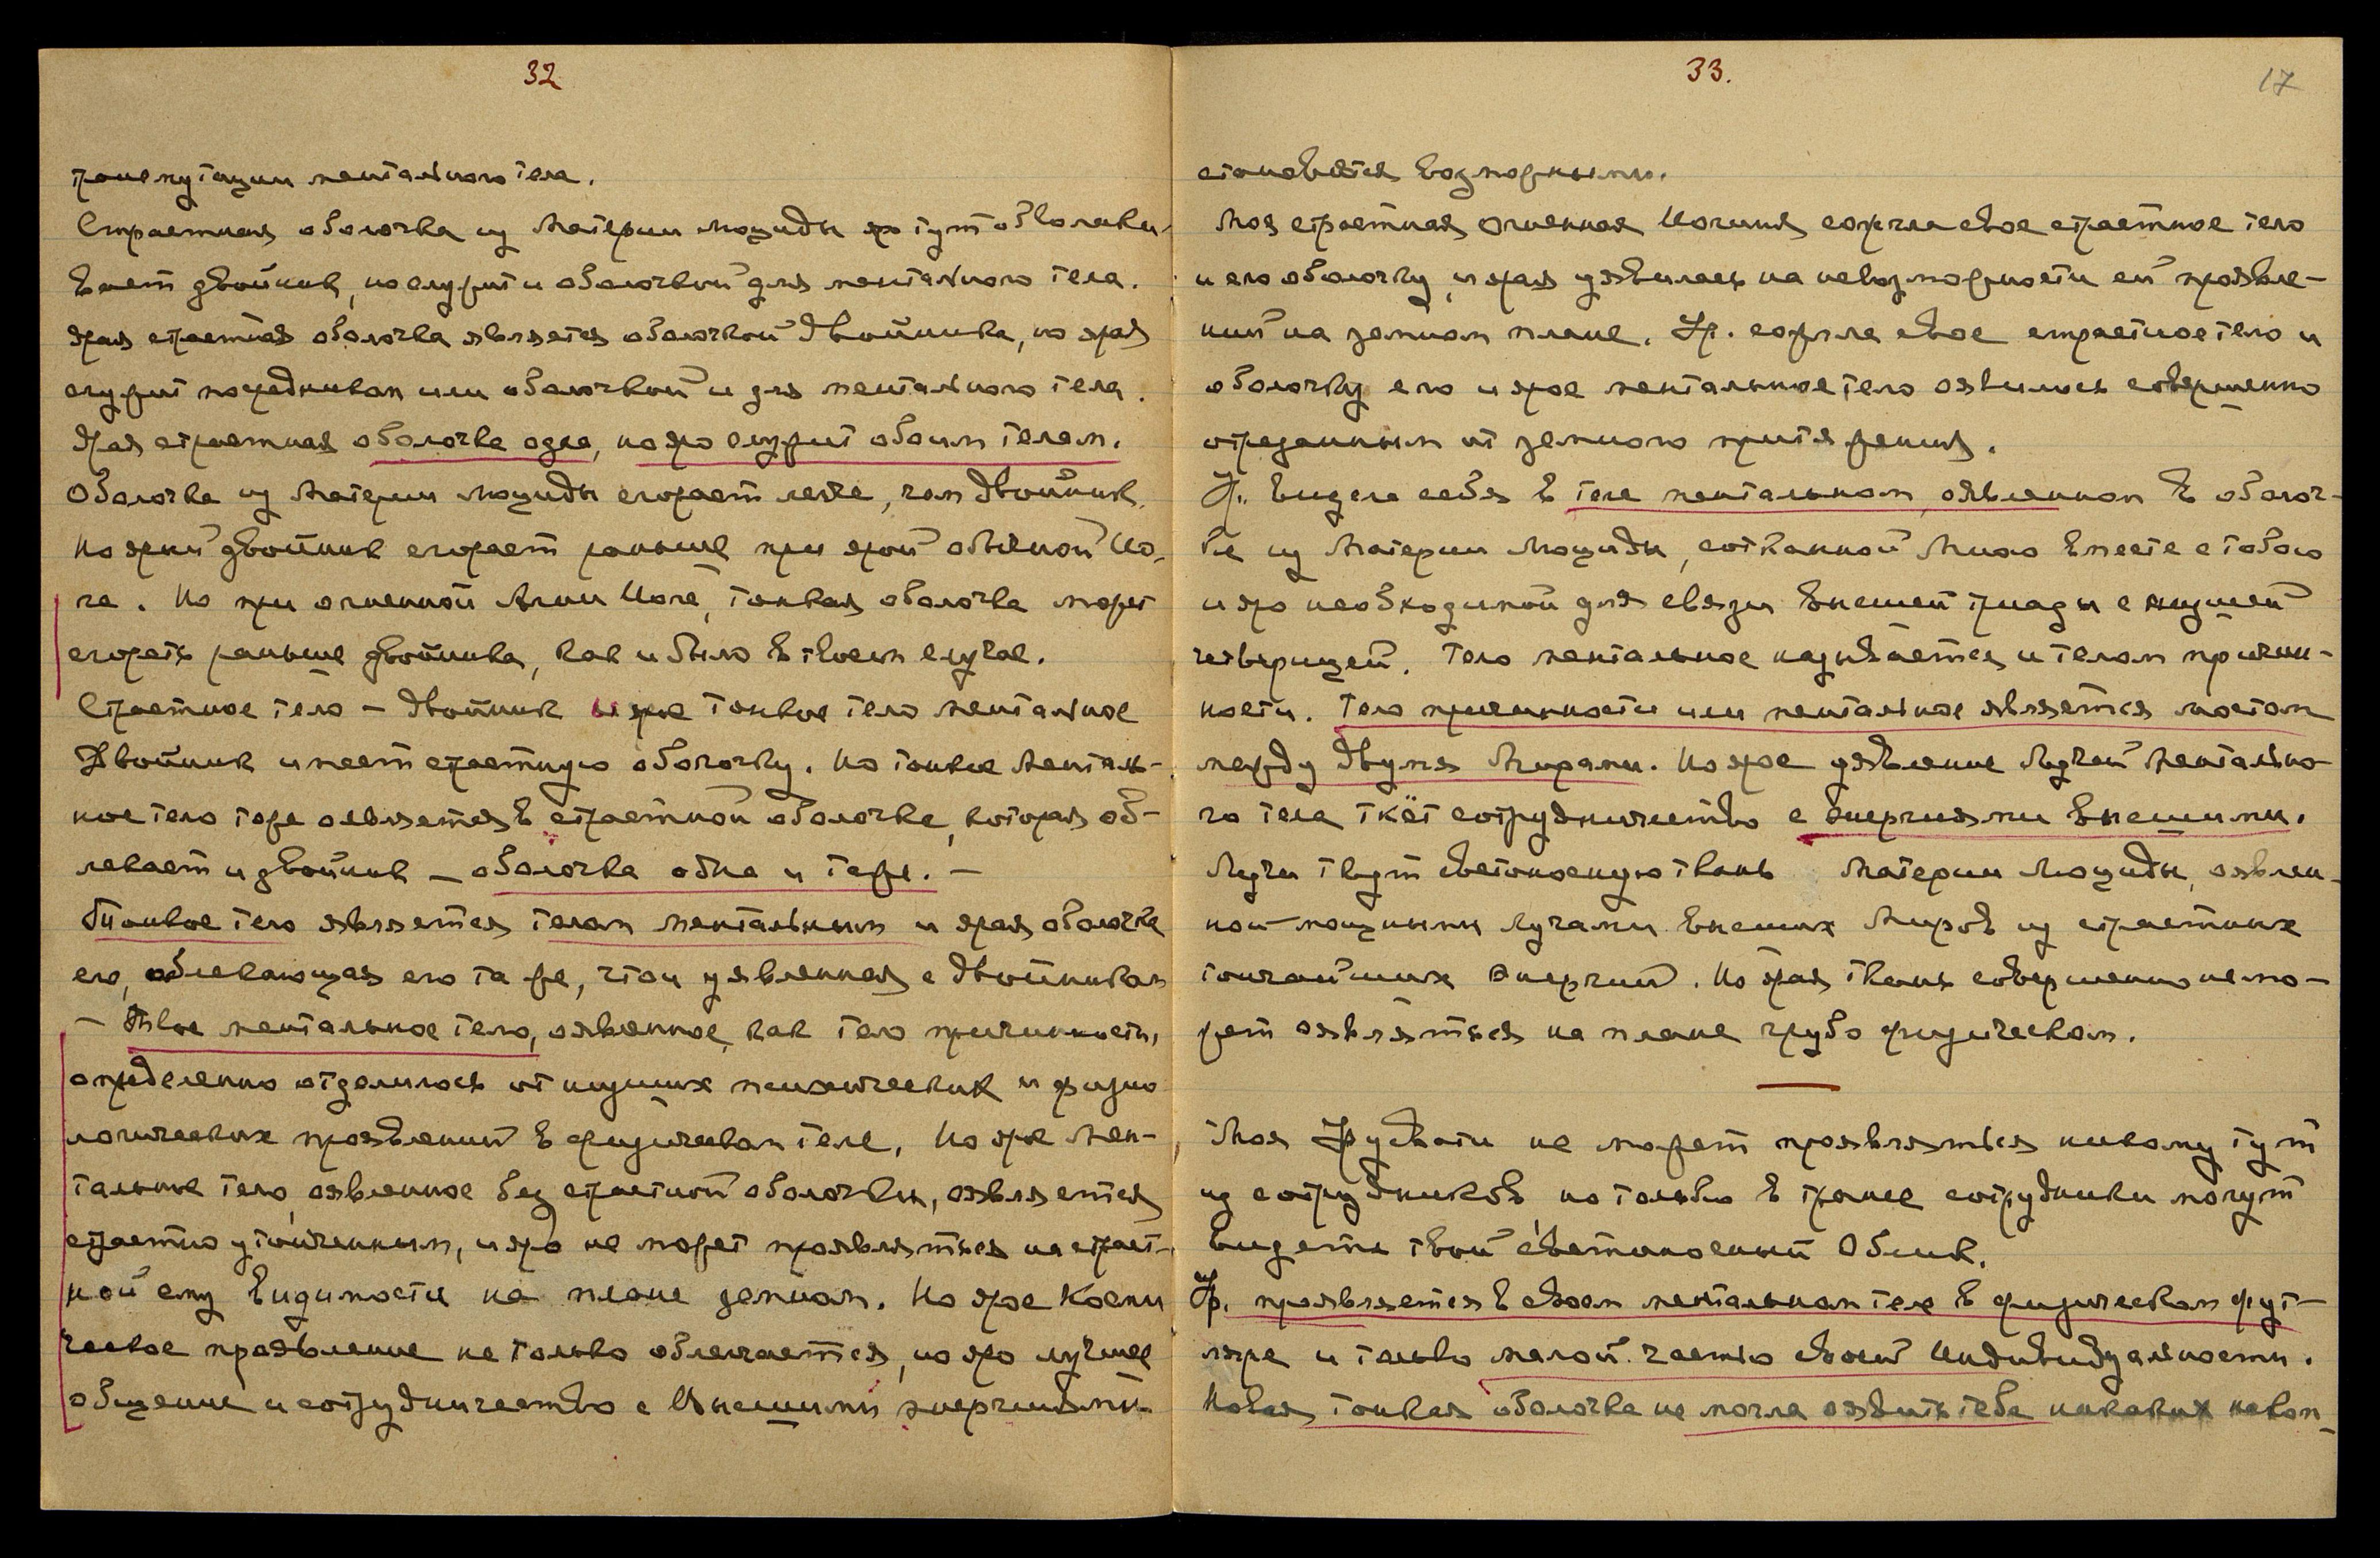 32
трансмутации ментального тела.
Страстная оболочка из Материи Люциды яро тут обволаки-
вает двойник, но служит и оболочкой для ментального тела.
Ярая страстная оболочка является оболочкой Двойника, но ярая
служит посредником или оболочкой и для ментального тела.
Ярая страстная оболочка одна, но яро служит обоим телам.
Оболочка из Материи Люциды сгорает легче, чем Двойник.
Но ярый двойник сгорает раньше при ярой обычной Йо-
ге. Но при огненной Агни Йоге, тонкая оболочка может
сгореть раньше двойника, как и было в твоем случае.
Страстное тело – Двойник и ярое тонкое тело ментальное
Двойник имеет страстную оболочку. Но тонкое менталь-
ное тело тоже является в страстной оболочке, которая об-
лекает и двойник – оболочка одна и та же. –
Тонкое тело является телом ментальным и ярая оболочка
его, облекающая его та же, что и уявленная с Двойником
– Твое ментальное тело, оявленное, как тело причинности,
определенно отделилось от низших психических и физио
логических проявлений в физическом теле. Но ярое Мен-
тальное тело, оявленное без страстной оболочки, оявляется
страстно утонченным, и яро не может проявляться на страст-
ной ему видимости на плане земном. Но ярое Косми
ческое проявление не только облегчается, но яро лучшее
общение и сотрудничество с Высшими энергиями
33.
17
становятся возможными.
Моя страстная огненная Йогиня сожгла свое страстное тело
и его оболочку, и ярая уявилась на невозможности ей проявле-
ний на земном плане. Ур. сожгла свое страстное тело и
оболочку его и ярое ментальное тело оявилось совершенно
отрезанным от земного притяжения.
Ур. видела себя в теле ментальном, оявленном в оболоч-
ке из Материи Люциды, сотканной Мною вместе с тобою
и яро необходимой для связи высшей триады с низшей
четверицей. Тело ментальное называется и телом причин-
ности. Тело причинности или ментальное является мостом
между двумя Мирами. Но ярое уявление Лучей Ментально-
го тела ткёт сотрудничество с энергиями высшими.
Лучи ткут светоносную ткань Материи Люциды, оявлен-
ной мощными лучами высших Миров из страстных
тончайших энергий. Но ярая ткань совершенно не мо-
жет оявляться на плане грубо физическом.
Моя Урусвати не может проявляться никому тут
из сотрудников, но только в трансе сотрудники могут
видеть твой светоносный Облик.
Ур. проявляется в своем ментальном теле в физическом фут-
ляре и только малой частью своей Индивидуальности.
Новая тонкая оболочка не могла оявить тебя никаких